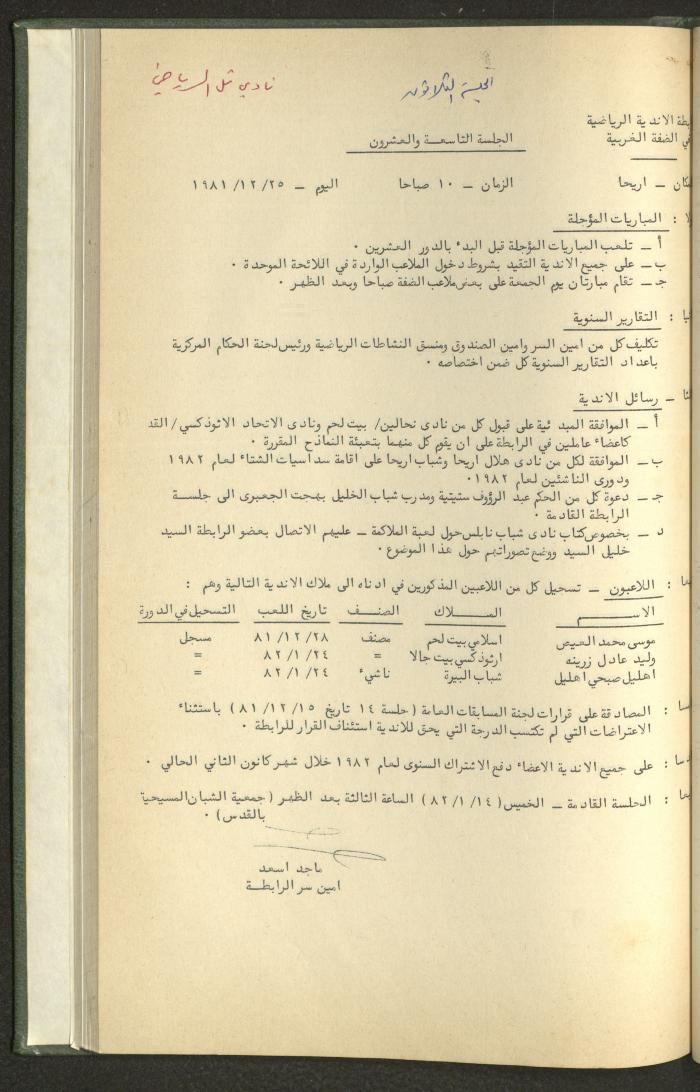 نادي تل الرياضي
الجلسة الثلاثون
بطة الاندية الرياضية
في الضفة الغربية
الجلسة التاسعة والعشرون
كان – اريحا الزمان – ١٠ صباحا اليوم – ٢٥/ ١٢/ ١٩٨١
ا : المباريات المؤجلة
أ – تلعب المباريات المؤجلة قبل البدء بالدور العشرين ٠
ب – على جميع الاندية التقيد بشروط دخول الملاعب الواردة في اللائحة الموحدة ٠
جـ – تقام مبارتان يوم الجمعة على بعض ملاعب الضفة صباحا وبعد الظهر ٠
يا : التقارير السنوية
تكليف كل من امين السر وامين الصندوق ومنسق النشاطات الرياضية ورئيس لجنة الحكام المركزية
باعداد التقارير السنوية كل ضمن اختصاصه ٠
ثا – رسائل الاندية
أ – الموافقة المبدئية على قبول كل من نادى نحالين/ بيت لحم ونادى الاتحاد الاثوذكسي/ القد
كاعضاء عاملين في الرابطة على ان يقوم كل منهما بتعبئة النماذج المقررة ٠
ب – الموافقة لكل من نادى هلال اريحا وشباب اريحا على اقامة سداسيات الشتاء لعام ١٩٨٢
ودورى الناشئين لعام ١٩٨٢٠
جـ – دعوة كل من الحكم عبد الرؤوف ستيتية ومدرب شباب الخليل بهجت الجعبرى الى جلسة
الرابطة القادمة ٠
د – بخصوص كتاب نادى شباب نابلس حول لعبة الملاكمة – عليهم الاتصال بعضو الرابطة السيد
خليل السيد ووضع تصوراتهم حول هذا الموضوع ٠
عا : اللاعبون – تسجيل كل من اللاعبين المذكورين في ادناه الى ملاك الاندية التالية وهم :
الاسم الملاك الصنف تاريخ اللعب التسجيل في الدورة
موسى محمد العيص اسلامي بيت لحم مصنف ٢٨/ ١٢/ ٨١ مسجل
وليد عادل زرينه ارثوذكسي بيت جالا = ٢٤/ ١/ ٨٢ =
اهليل صبحي اهليل شباب البيرة ناشيء ٢٤/ ١/ ٨٢ =
سا : المصادقة على قرارات لجنة المسابقات العامة ( جلسة ١٤ تاريخ ١٥/ ١٢/ ٨١ ) باستثناء
الاعتراضات التي لم تكتسب الدرجة التي يحق للاندية استئناف القرار للرابطة ٠
دسا : على جميع الاندية الاعضاء دفع الاشتراك السنوى لعام ١٩٨٢ خلال شهر كانون الثاني الحالي ٠
عا : الجلسة القادمة – الخميس ( ١٤/ ١/ ٨٢ ) الساعة الثالثة بعد الظهر ( جمعية الشبان المسيحية
بالقدس ) ٠
ماجد اسعد
امين سر الرابطة